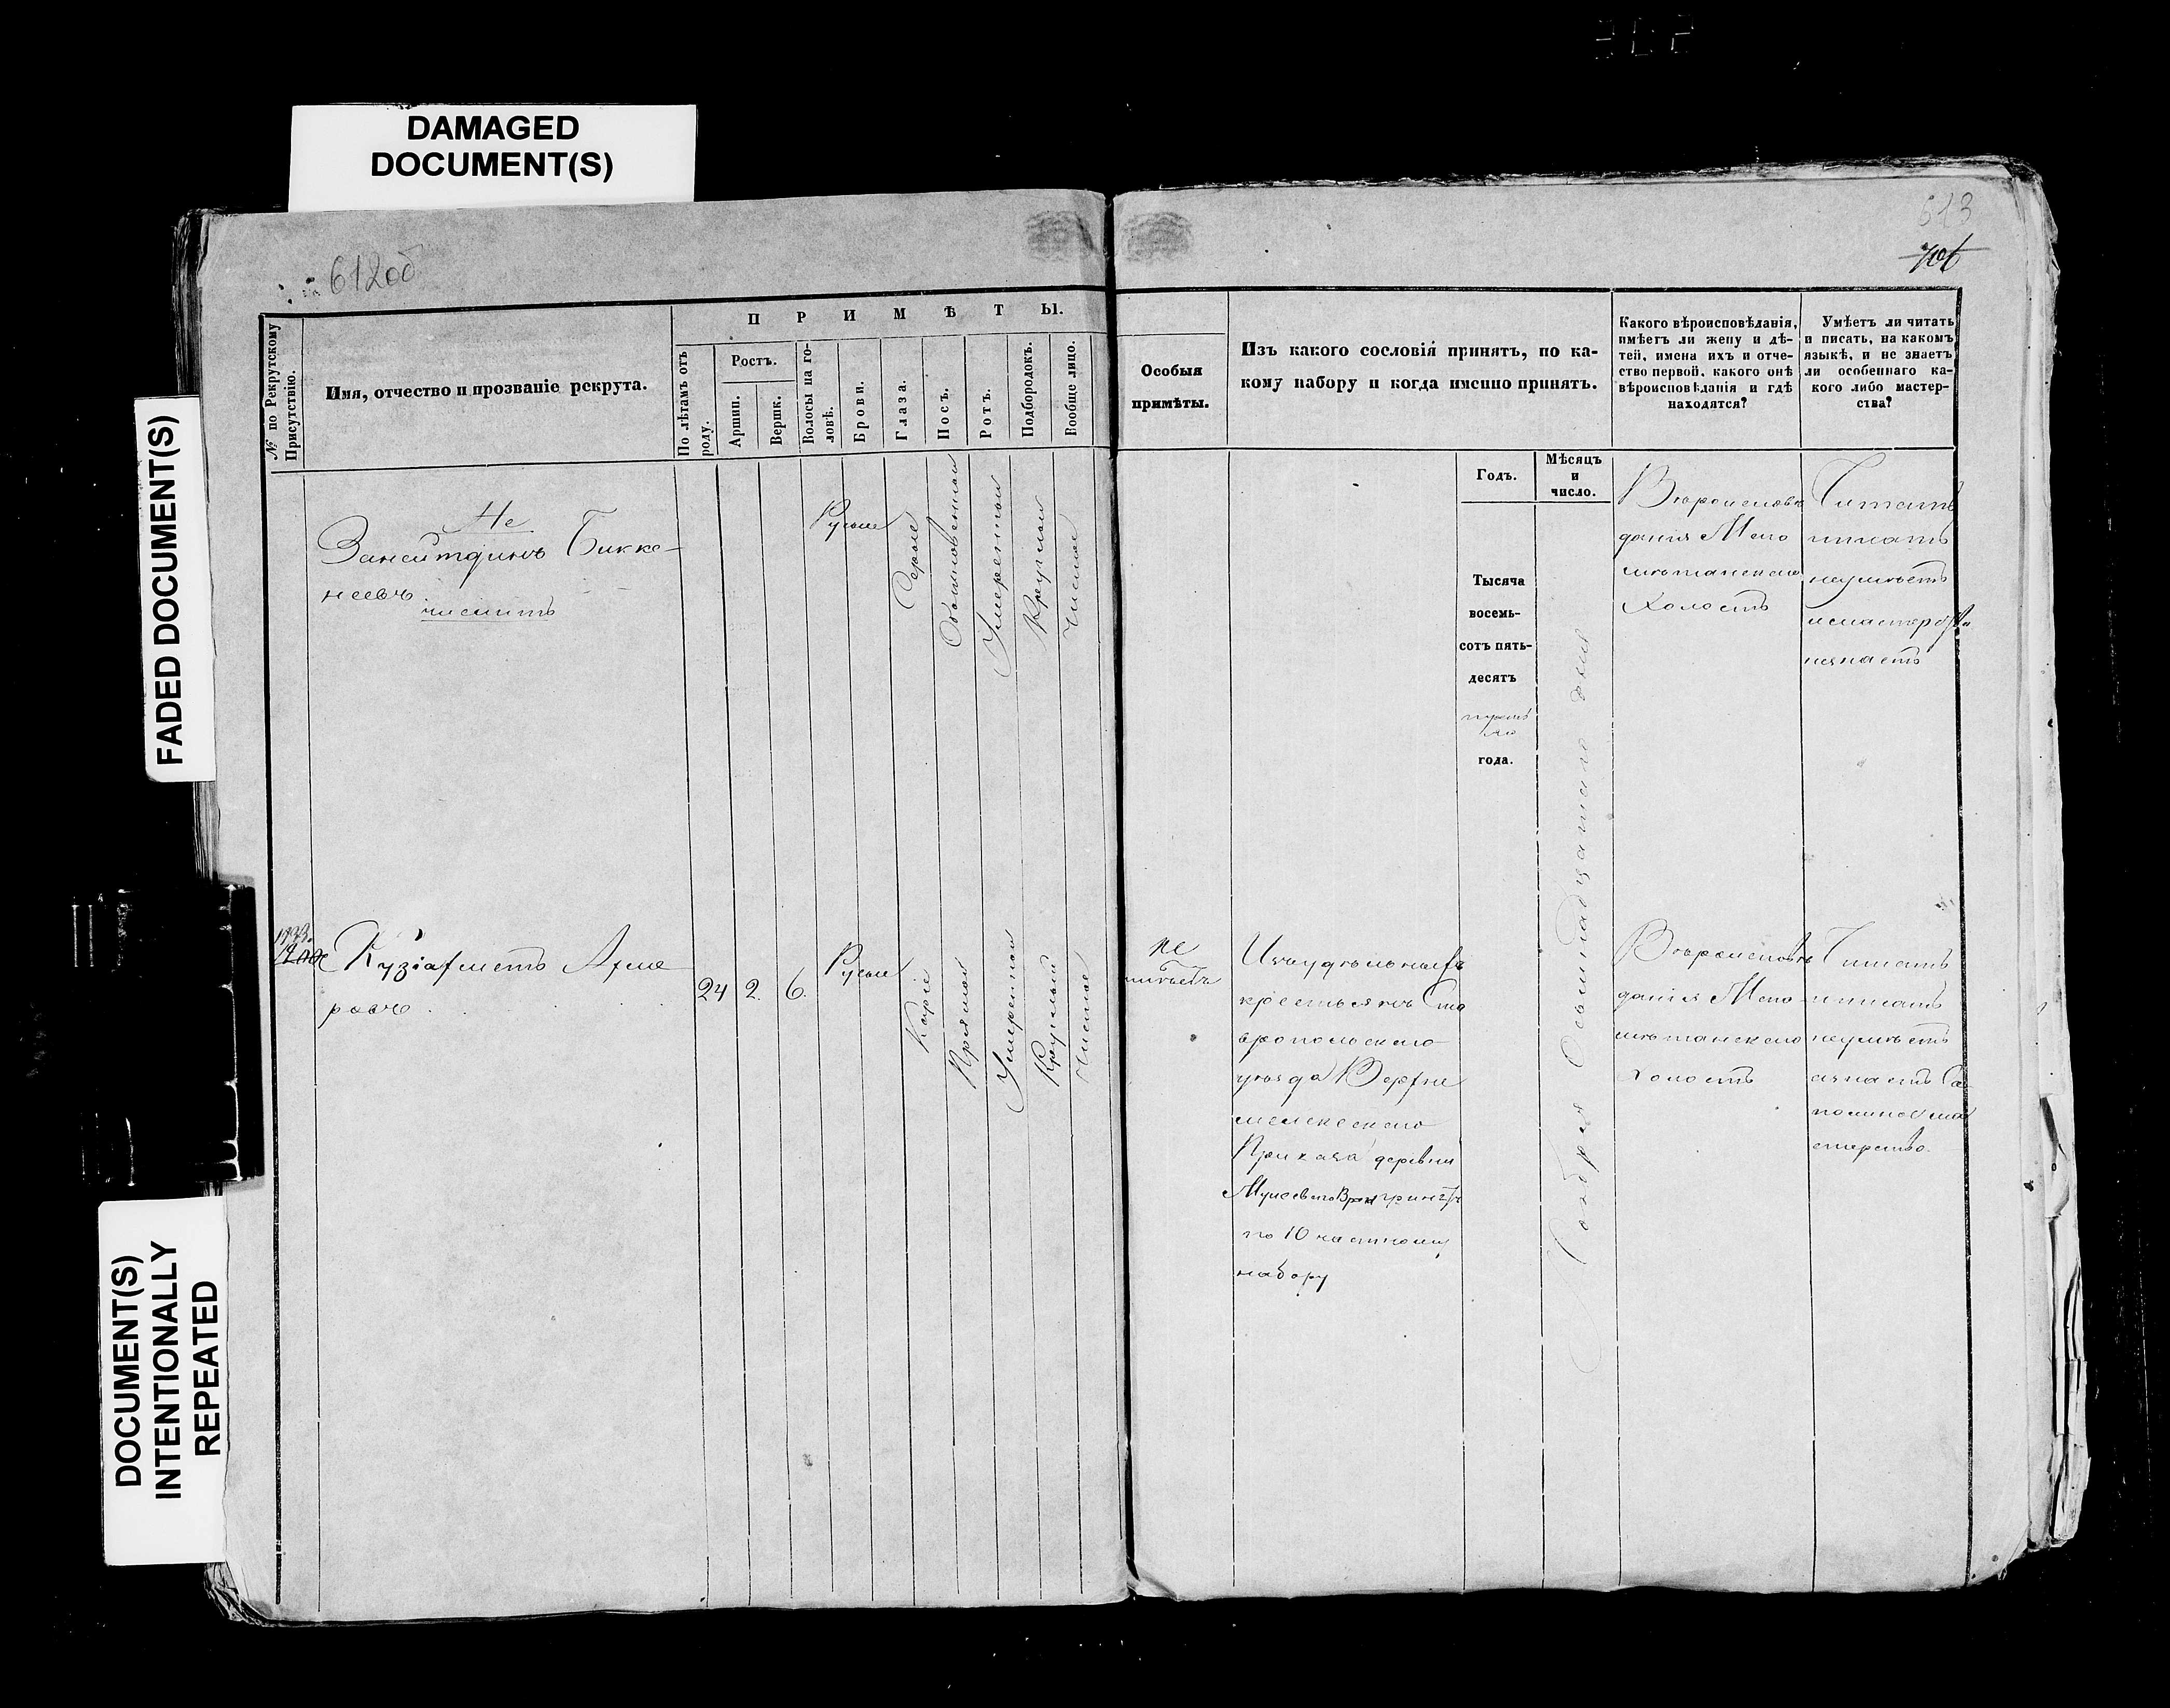 DAMAGED
DOCUMENT(S)
FADED DOCUMENT(S)
DOCUMENT(S)
INTENTIONALLY
REPEATED
612об
613
П Р И М Ѣ Т Ы.
№ по Рекрутскому
Присутствію.
Имя, отчество и прозваніе рекрута.
По лѣтамъ отъ
роду.
Ростъ.
Аршин.
Вершк.
Волосы на го-
ловѣ.
Брови.
Глаза.
Носъ.
Ротъ.
Подбородокъ.
Вообще лицо.
Особыя
примѣты.
Изъ какого сословія принятъ, по ка-
кому набору и когда имснно принятъ.
Какого вѣроисповѣданія,
имѣетъ ли жену и дѣ-
тей, имена ихъ и отче-
ство первой, какого онѣ
вѣроисповѣданія и гдѣ
находятся?
Умѣетъ ли читать
и писать, на какомъ
языкѣ, и не знаетъ
ли особеннаго ка-
кого либо мастер-
ства?
Годъ.
Мѣсяцъ
и
число.
Не
Занеитдинъ Бикке-
неевъ
числить
Русые
Серые
Обыкновенный
Умеренный
Круглый
Чистое
Тысяча
восемь-
сотъ пять-
десятъ
года.
Вероисповѣ
данія Маго
мѣтанскаго
Холостъ
Читать
писать
неумѣетъ
незнаетъ
Ноября Осьмнадцатаго дня
1733.
24
2.
6.
Русые
Каріе
Прямой
Умеренный
Круглый
Чистое
не
имѣетъ
Изъ удѣльныхъ
крестьянъ Ста
вропольскаго
уѣзда Верхне
мелекескаго
Приказа деревни
по 10 частному
набору
Вѣроисповѣ
данія Маго
мѣтанскаго
холостъ
Читать
писать
неумѣетъ
азнаетъ Са
пожное ма
стерство.